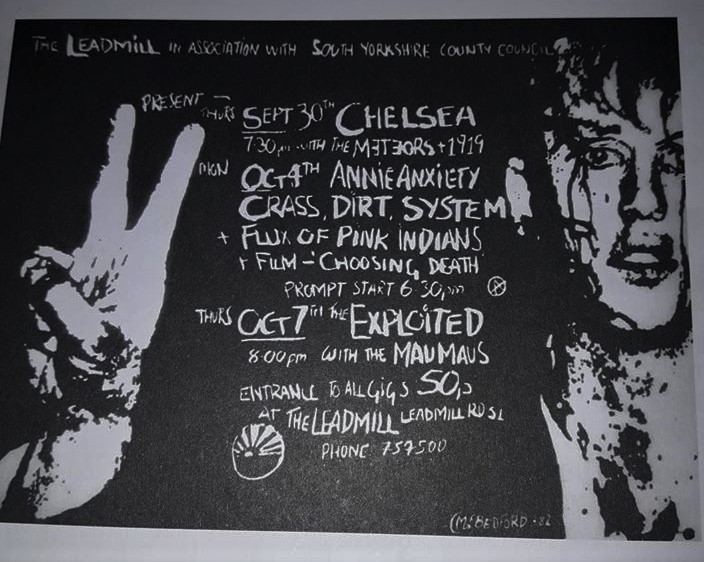 THE LEADMILL IN ASSOCIATION WITH SOUTH YORKSHIRE COUNTY COUNCIL
PRESENT —
THURS SEPT 30TH CHELSEA
7:30pm WITH THE METEORS + 1919
MON OCT 4TH ANNIE ANXIETY
CRASS, DIRT, SYSTEM
+ FLUX OF PINK INDIANS
+ FILM - CHOOSING DEATH
PROMPT START 6.30pm
THURS OCT 7TH THE EXPLOITED
8:00pm WITH THE MAU MAUS
ENTRANCE TO ALL GIGS 50p
AT THE LEADMILL LEADMILL RD S1
PHONE 757500
(M. BEDFORD · 82